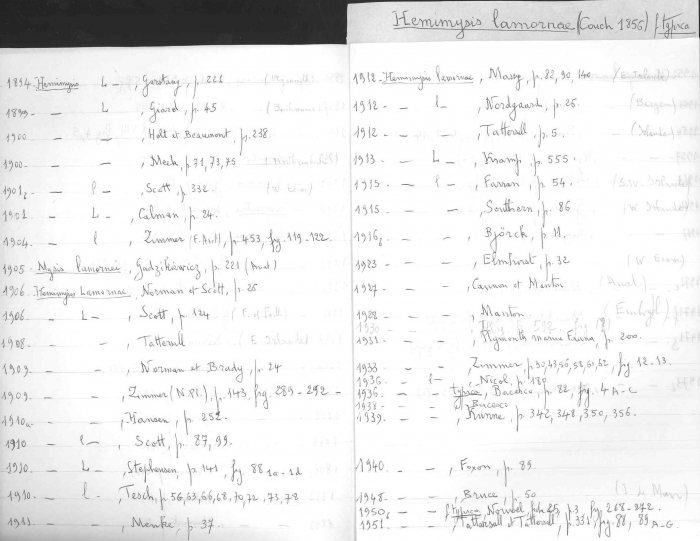 Hemimysis lamornae (Couch 1856) f. typica
1894. Hemimysis L - , Garstang, p. 221 (Plymouth)
1899 - - L - , Giard, p. 45
1900 - - - , Holt et Beaumont, p. 238.
1900 - - - , Meek, p. 71, 73, 75
1901b - - l - , Scott, p. 332
1901 - - L - , Calman, p. 24.
1904. - l , Zimmer (F. Arct.), p. 453, fig. 119-122.
1905 - Mysis lamornai, Gadzikiewicz, p. 221 (Anat)
1906. Hemimysis Lamornae, Norman et Scott, p. 25
1906 - - L - , Scott, p. 124
1908 - - - , Tattersall
1909 - - - , Norman et Brady, p. 24
1909 - - - , Zimmer (N. Pl.), p. 143, fig. 289-292 -
1910a - - - , Hansen, p. 252.
1910 - l - , Scott, p. 87, 99.
1910 - - L - , Stephensen, p. 141, fig. 88 1a-1d
1910 - - l. - , Tesch, p. 56, 63, 66, 68, 70, 72, 73, 78
1911 - - - , Menke, p. 37.
1912 - Hemimysis lamornae, p. 82, 90, 140
1912 - - l - , Nordgaard, p. 25. (Bergen)
1912 - - - , Tattersall, p. 5.
1913 - - L - , Kramp, p. 555.
1915 - - l - , Farran, p. 54.
1915 - - - , Southern, p. 86
1916 - - - , Björck, p. 11.
1923 - - - , Elmhirst, p. 32
1927 - - - , Cannon et Manton (Anat)
1928 - - - , Manton (Embryol)
1930
1931 - - - , Plymouth marine Fauna, p. 200.
1933 - - - , Zimmer, p. 30, 43, 56, 58, 61, 62, fig. 12-13.
1936 - l - , Nicol, p. 180
1936 - - typica, Bacesco, p. 82, fig. 4 A-C
1938 - - Bacesco
1939. - - - , Runne, p. 342, 348, 350, 356.
1940 - - - , Foxon, p. 89.
1948 - - - , Bruce, p. 50
1950b - - f. typica, Nouvel, fich. 25, p. 3, fig. 268-272.
1951 - - - , Tattersall et Tattersall, p. 331, fig. 88, 89 A-G.